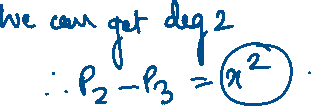 we can get deg 2
∴ P₂ - P₃ = x².